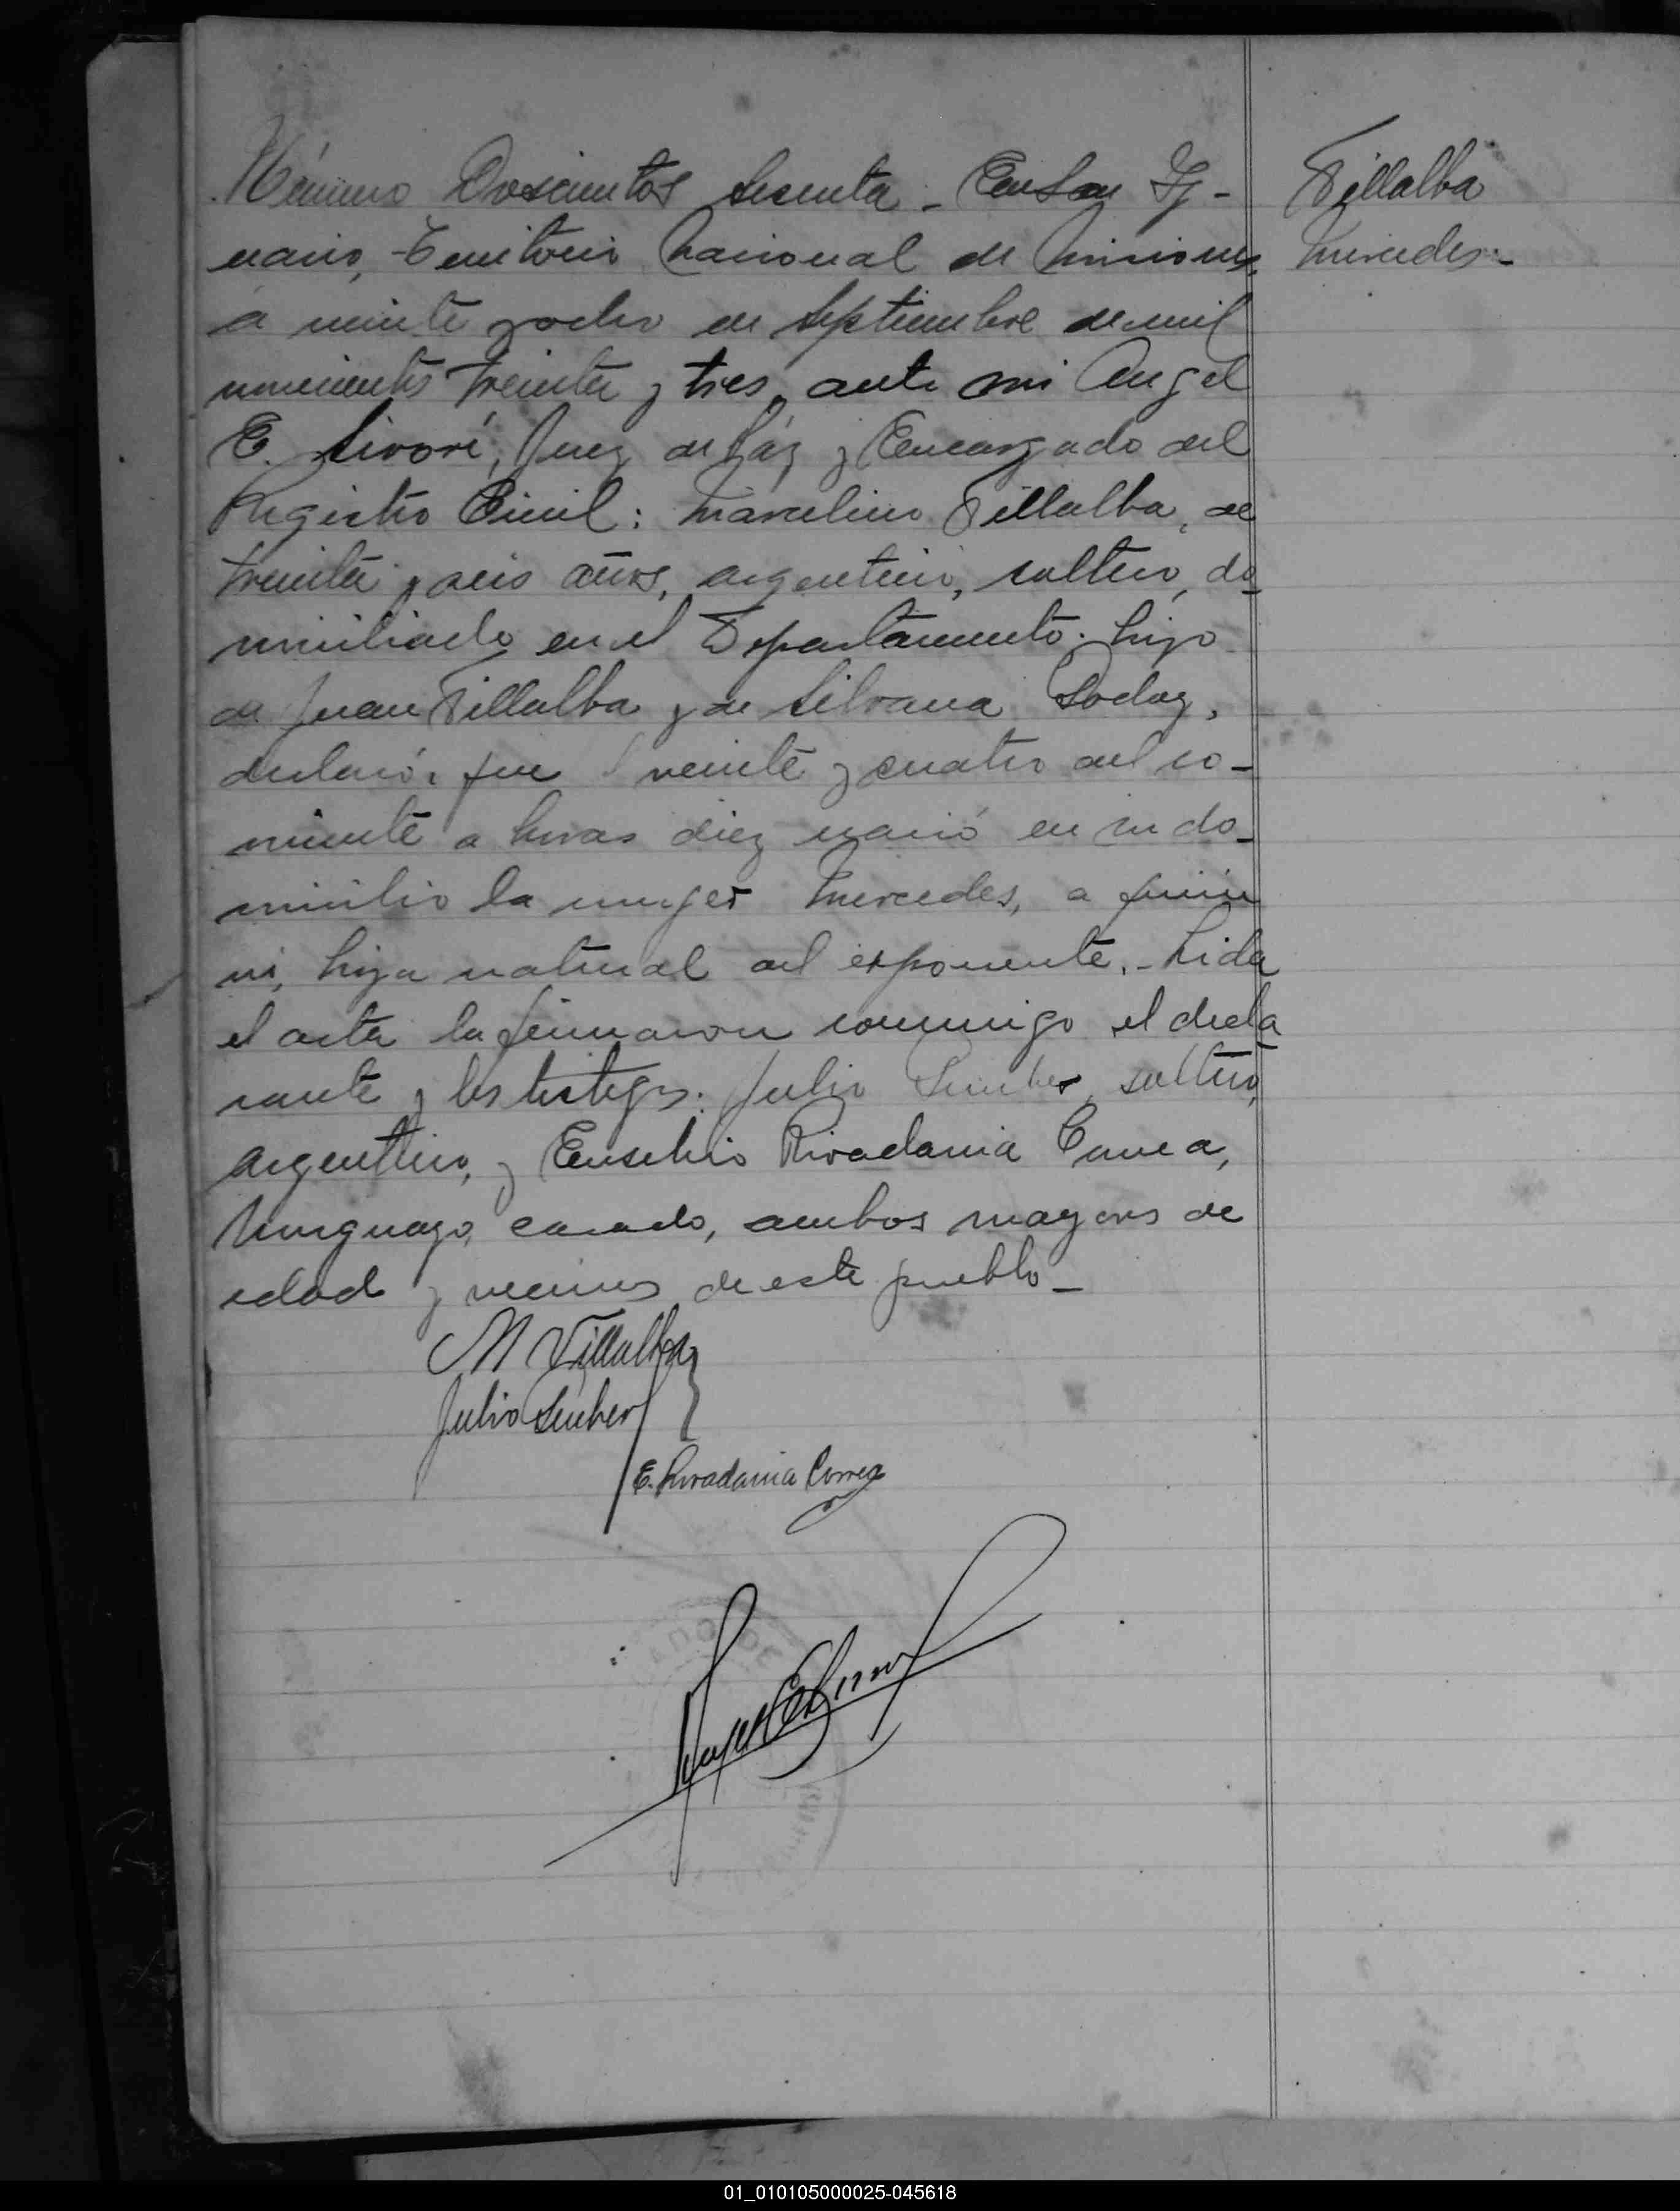 Número Doscientos sesenta - En San Ig-
nacio, Territorio Nacional de Misiones,
a veinte y ocho de Septiembre de mil
novecientos treinta y tres, ante mi Angel
E. Sivori, Juez de Páz y Encargado del
Registro Civil: Marcelino Villalba, de
treinta y seis años, argentino, soltero, do-
miciliado en el Departamento. hijo
de Juan Villalba y de Silvana Godoy,
declaró: que el veinte y cuatro del co-
rriente a horas diez nació en su do-
micilio la mujer Mercedes, a quién
vi, hija natural del exponente. - Leida
el acta la firmaron conmigo el decla
rante y los testigos: Julio soltero,
argentino, y Eusebio Rivadania Correa,
Uruguayo, casado, ambos mayores de
edad y vecinos de este pueblo -
M Villalba
Julio
E. Rivadania Correa
Villalba
Mercedes. -
01_010105000025-045618